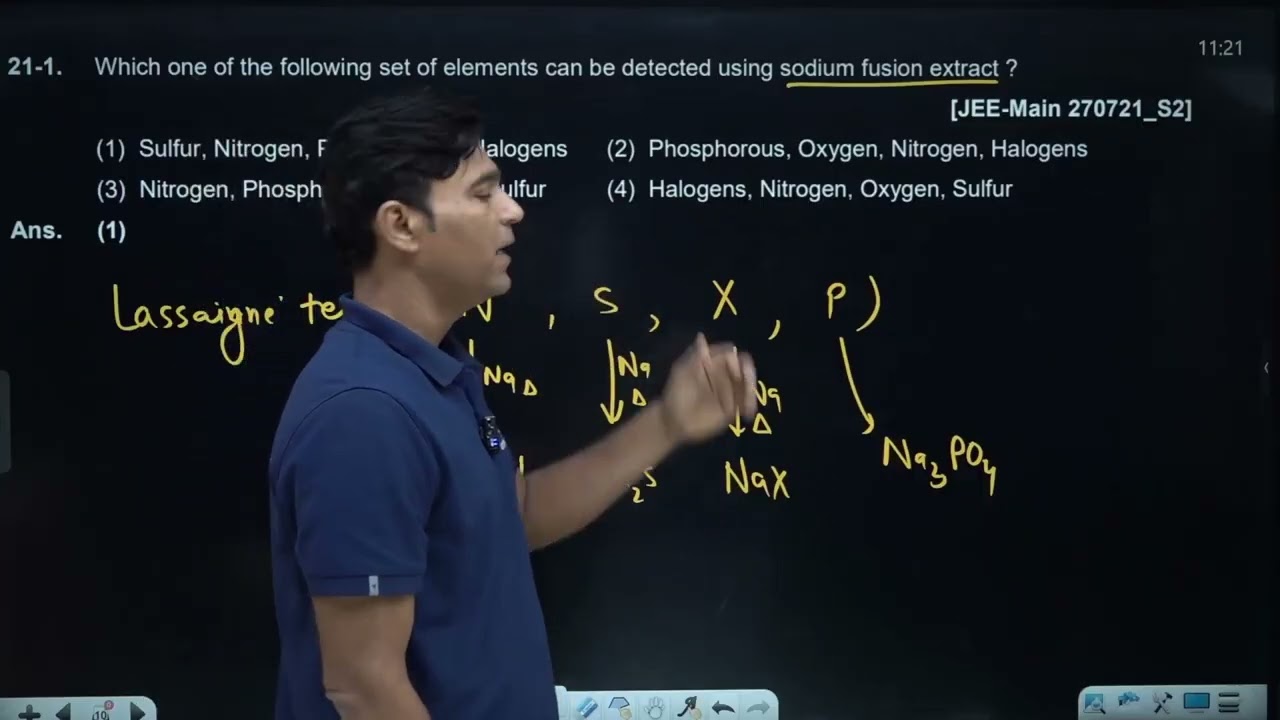 11:21
21-1. Which one of the following set of elements can be detected using sodium fusion extract ?
[JEE-Main 270721_S2]
(1) Sulfur, Nitrogen, (2) Phosphorous, Oxygen, Nitrogen, Halogens
(3) Nitrogen, (4) Halogens, Nitrogen, Oxygen, Sulfur
Ans. (1)
Lassaigne , S , X , P)
Na Δ Na Δ Na Δ
NaX Na3PO4